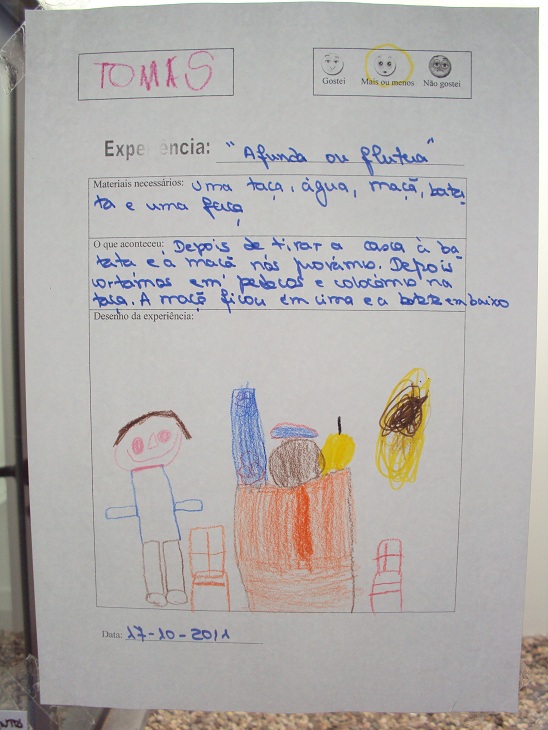 TOMAS
Gostei
Mais ou menos
Não gostei
Experiência: "Afunda ou flutua"
Materiais necessários: uma taça, água, maçã, bata-
ta e uma faca
O que aconteceu: Depois de tirar a casca à ba-
tata e à maçã nós provámo. Depois
cortámos em pedaços e colocámo na
taça. A maçã ficou em cima e a batata em baixo
Desenho da experiência:
Data: 17-10-2011